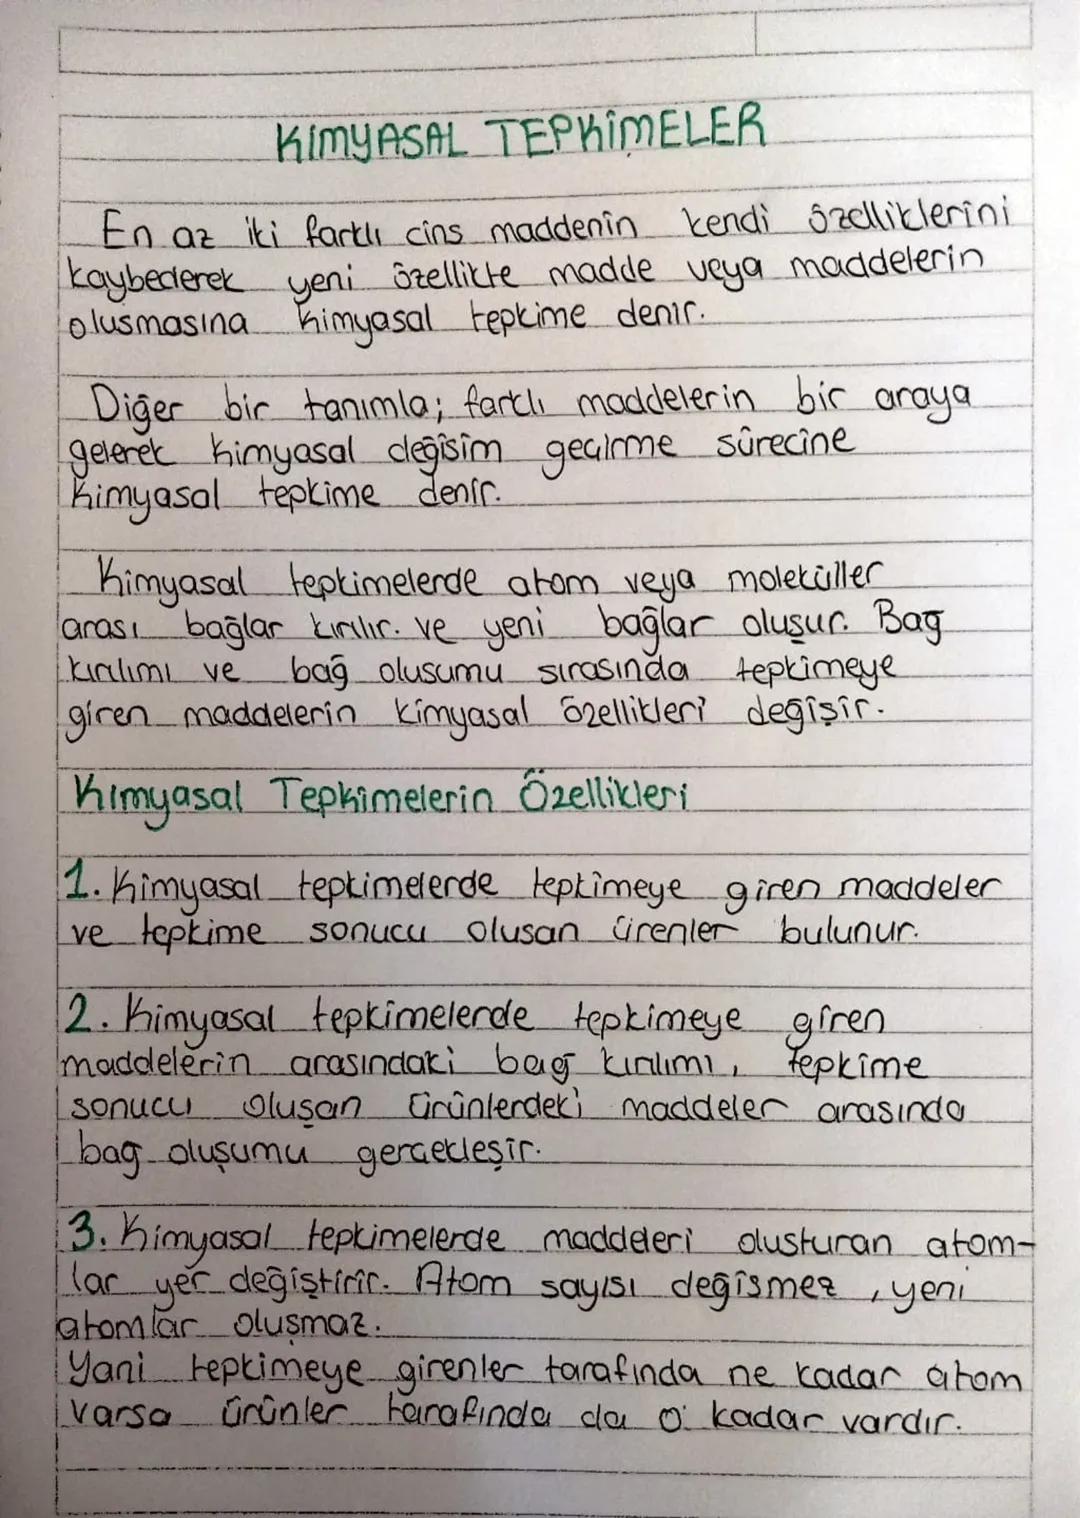 KIMYASAL TEPKİMELER
En az iki farklı cins maddenin kendi özelliklerini
kaybederek yeni özellikte madde veya maddelerin
olusmasına kimyasal tepkime denir.
Diğer bir tanımla; farklı maddelerin bir araya
gelerek kimyasal değisim geçirme sürecine
kimyasal tepkime denir.
Kimyasal tepkimelerde atom veya moleküller
arası bağlar kırılır. ve yeni bağlar oluşur. Bağ
kırılımı ve bağ olusumu sırasında tepkimeye
giren maddelerin kimyasal özellikleri değişir.
Kımyasal Tepkimelerin Özellikleri
1. Kimyasal tepkimelerde tepkimeye giren maddeler
ve tepkime sonucu olusan ürenler bulunur.
2. Kimyasal tepkimelerde tepkimeye giren
maddelerin arasındaki bağ kırılımı, tepkime
sonucu oluşan ürünlerdeki maddeler arasında
bağ oluşumu gerçekleşir.
3. Kimyasal tepkimelerde maddeleri olusturan atom-
lar yer değiştirir. Atom sayısı değismez, yeni
atomlar oluşmaz.
Yani tepkimeye girenler tarafında ne kadar atom
varsa ürünler tarafında da o kadar vardır.